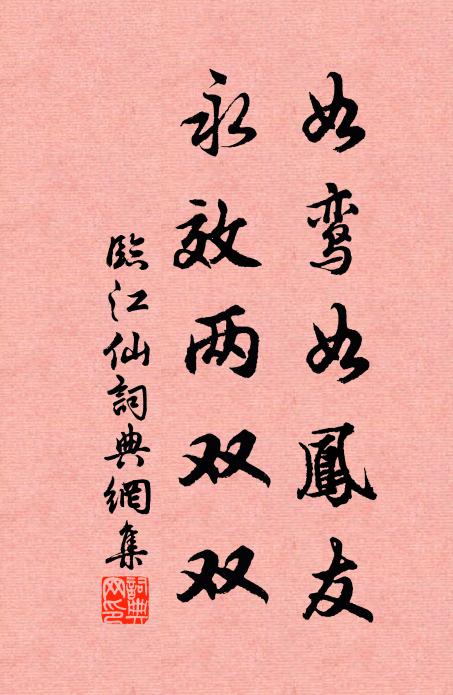 如鸾如鳳友
永效两双双
臨江仙詞典網集
詞典網印